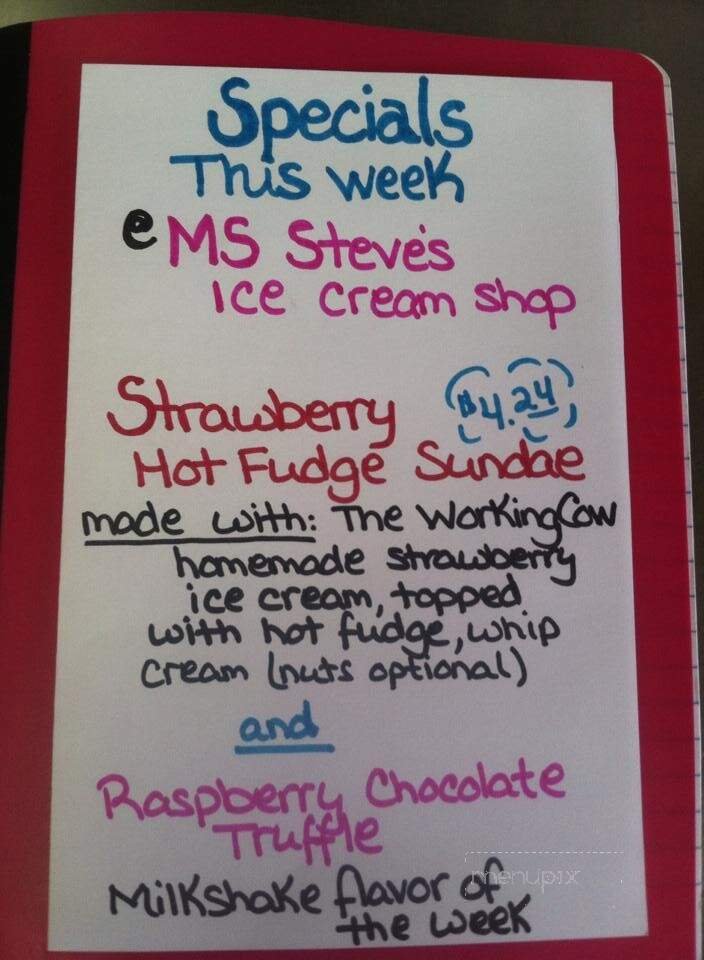 Specials
This week
@ MS Steve's
Ice cream shop
Strawberry $4.24
Hot Fudge Sundae
made with: The Working Cow
homemade strawberry
ice cream, topped
with hot fudge, whip
cream (nuts optional)
and
Raspberry Chocolate
Truffle
Milkshake flavor of
the week
menupix